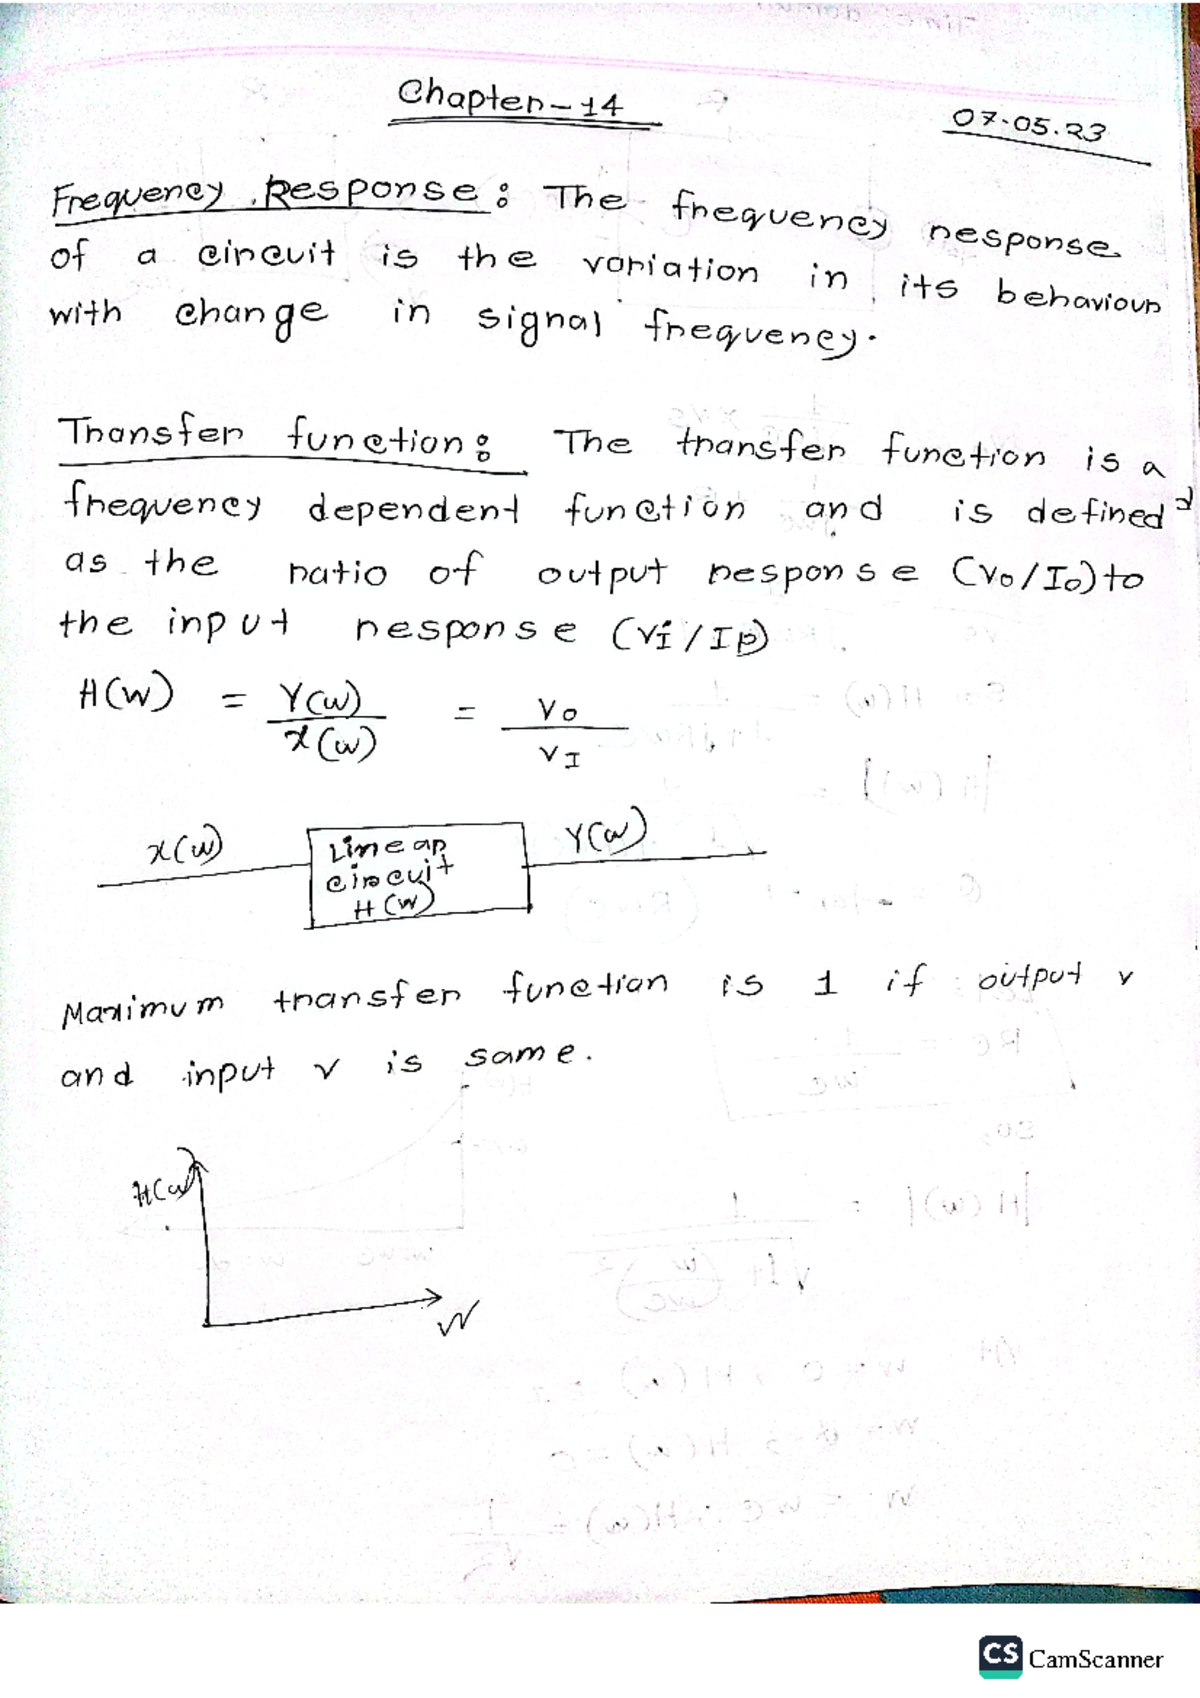 Chapter-14
07.05.23
Frequency Response: The frequency response
of a circuit is the variation in its behaviour
with change in signal frequency.
Transfer function: The transfer function is a
frequency dependent function and is defined
as the ratio of output response (Vo/Io) to
the input response (Vi/Ii)
H(w) = Y(w)/X(w) = Vo/VI
X(w)
Linear
circuit
H(w)
Y(w)
Maximum transfer function is 1 if output v
and input v is same.
H(w)
W
CS CamScanner